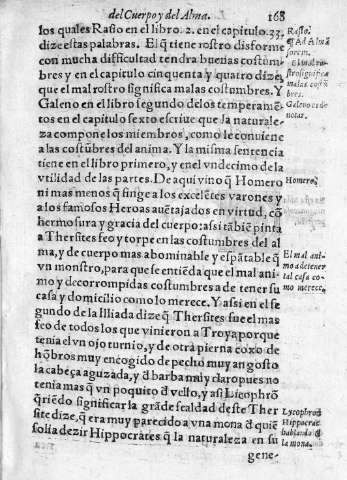 del Cuerpo y del Alma. 168
los quales Rasio en el libro. 2. en el capitulo. 33.
dize estas palabras. El q̃ tiene rostro disforme
con mucha difficultad tendra buenas costũm
bres y en el capitulo cinquenta y quatro dize,
que el mal rostro significa malas costumbres. Y
Galeno en el libro segundo delos temperamẽ
tos en el capitulo sexto escriue que la naturale
za compone los miembros, como le conuiene
a las costũbres del anima. Y la misma sentencia
tiene en el libro primero, y en el vndecimo de la
vtilidad de las partes. De aqui vino q̃ Homero
ni mas menos q̃ finge a los excelẽtes varones y
a los famosos Heroas auẽtajados en virtud, cõ
hermosura y gracia del cuerpo: assi tãbiẽ pinta
a Thersites feo y torpe en las costumbres del al
ma, y de cuerpo mas abominable y espãtable q̃
vn monstro, para que se entiẽda que el mal ani-
mo y de corrompidas costumbres a de tener su
casa y domicilio como lo merece. Y assi en el se
gundo de la Illiada dize q̃ Thersites fue el mas
feo de todos los que vinieron a Troya porque
tenia el vn ojo turnio, y de otra pierna coxo de
hõbros muy encogido de pecho muy angosto
la cabeça aguzada, y đ barba nrĩl y claro pues no
tenia mas q̃ vn poquito đ vello, y assi Licophrõ
q̃riẽdo significar la grãde fealdad deste Ther
site dize, q̃ era muy parecido a vna mona đ quiẽ
solia dezir Hippocrates q̃ la naturaleza en su
gene-
Rasio.
q̃ Ad Almã
sorem.
El mal ro-
stro significa
malas costũ
bres.
Galeno es de
notar.
Homero.
El mal ani-
mo a de tener
tal casa co-
mo merece.
Lycophrõ
Hippocrat.
hablando đ
la mona.